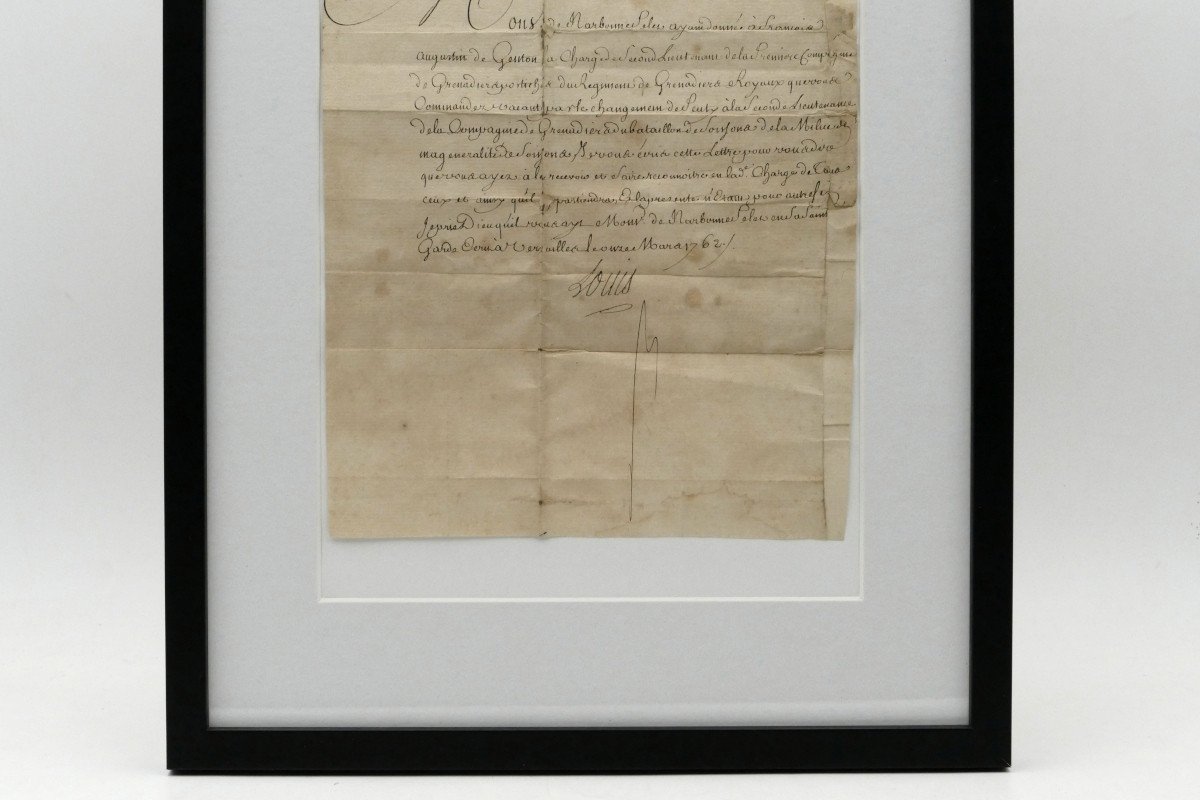 Mons. de Narbonne Pelet ayant donné à François
augustin de Genton la Charge de Second Lieutenant de la Premiere Compagnie
de Grenadiers postiches du Regiment de Grenadiers Royaux que vous
Commandez vacante par le changement de à la Seconde Lieutenance
de la Compagnie de Grenadiers du bataillon de Soissons de la Milice de
ma generalité de Soissons, Je vous écris cette Lettre pour vous dire
que vous ayez à le recevoir et faire reconnoitre en lad. Charge de Tous
ceux et ainsy qu'il appartiendra, Et la presente n'étant pour autre fin
Je prie Dieu qu'il vous ayt Mons. de Narbonne Pelet en sa Sainte
Garde Ecrit à Versailles le onze Mars 1762./.
Louis